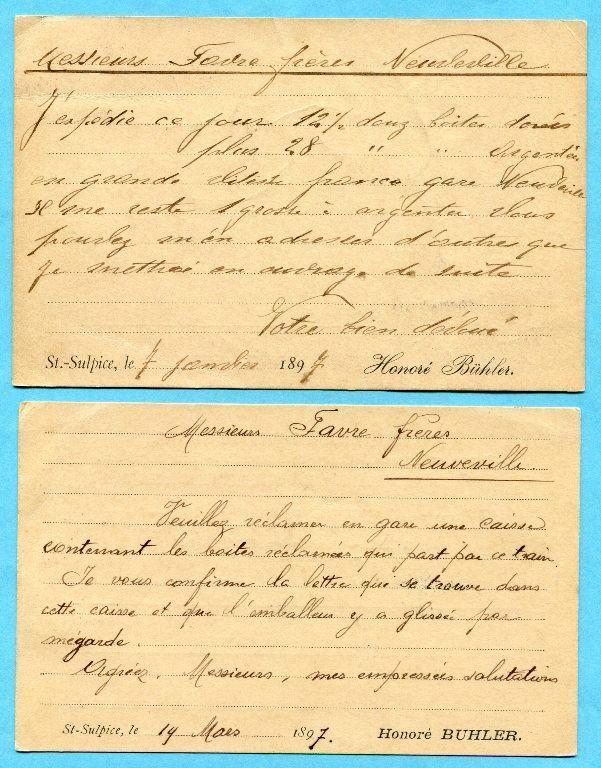 Messieurs Favre frères Neuveville
J'expédie ce jour 12 1/2 douz boites dorées
plus 28 " " Argentées
en grande vitesse franco gare Neuveville
Il me reste 1 grosse à argenter. Vous
pouvez m'en adresser d'autres que
je mettrai en ouvrage de suite
Votre bien dévoué
St.-Sulpice, le 7 janvier 1897 Honoré Bühler.
Messieurs Favre frères
Neuveville
Veuillez réclamer en gare une caisse
contenant les boites réclamées qui part par ce train
Je vous confirme la lettre qui se trouve dans
cette caisse et que l'emballeur y a glissée par
mégarde.
Agréez, Messieurs, mes empressées salutations
St-Sulpice, le 14 Mars 1897. Honoré BUHLER.